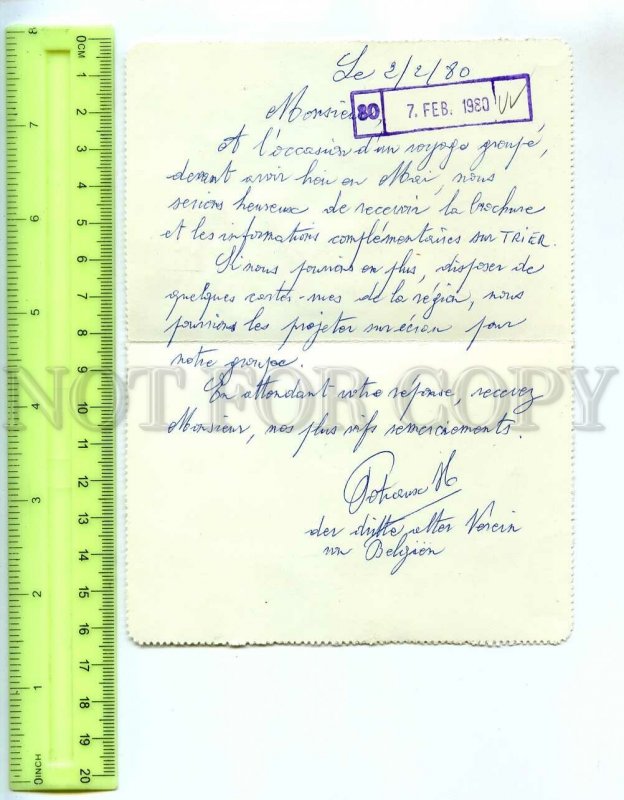 Le 2/2/80
Monsieur,
80 7. FEB. 1980
A l'occasion d'un voyage groupé,
devant avoir lieu en Mai, nous
serions heureux de recevoir la brochure
et les informations complémentaires sur TRIER.
Si nous pouvions en plus, disposer de
quelques cartes-vues de la région, nous
pourrions les projeter sur écran pour
notre groupe.
En attendant votre réponse, recevez
Monsieur, nos plus vifs remerciements.
der dritte alter Verein
von Belgiën
NOT FOR COPY
8 7 6 5 4 3 2 1 0 INCH
0 CM 1 2 3 4 5 6 7 8 9 10 11 12 13 14 15 16 17 18 19 20